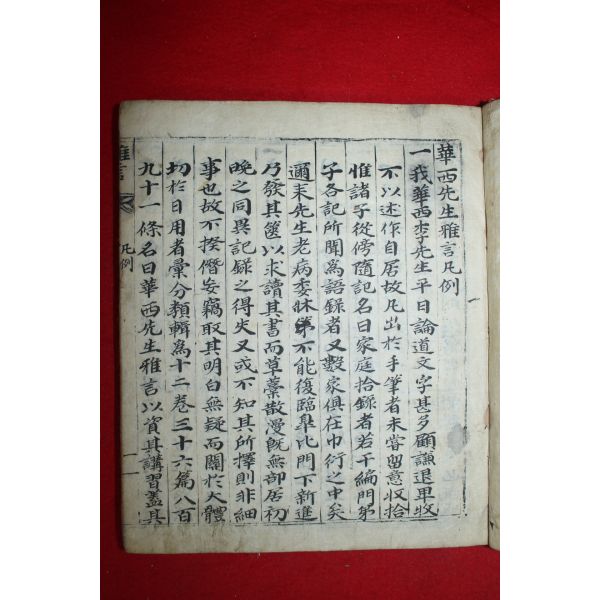 華西先生雅言凡例
一我華西李先生平日論道文字甚多顧謙退卑牧
不以述作自居故凡出於手筆者未嘗留意收拾
惟諸子從傍隨記名曰家庭拾錄者若干編門弟
子各記所聞爲語錄者又數家俱在巾衍之中矣
邇來先生老病委牀第不能復臨皐比門下新進
乃發其篋以求讀其書而草藁散漫旣無部居初
晚之同異記錄之得失又或不知其所擇則非細
事也故不揆僭妄竊取其明白無疑而關於大體
切於日用者彙分類輯爲十二卷三十六篇八百
九十一條名曰華西先生雅言以資其講習蓋其
雅言
凡例
一